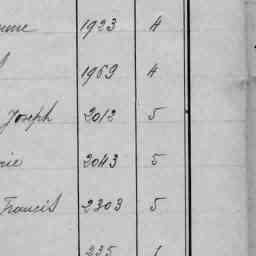 1923 4
1969 4
Joseph 2012 5
2043 5
Francis 2303 5
235 1